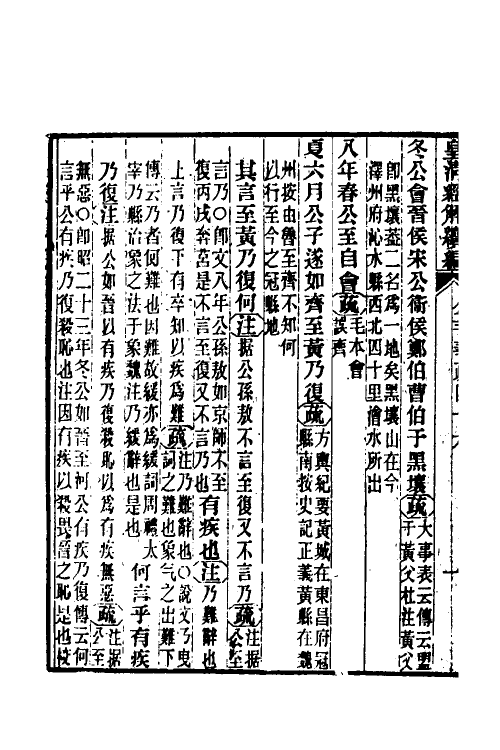 皇淸經解續編
冬公會晉侯宋公衞侯鄭伯曹伯于黑壤疏大事表云傳云盟于黃父杜注黃父
卽黑壤葢二名爲一地矣黑壤山在今
澤州府沁水縣西北四十里澮水所出
八年春公至自會疏毛本會誤齊
夏六月公子遂如齊至黃乃復疏方輿紀要黃城在東昌府冠縣南按史記正義黃縣在魏
州按由魯至齊不知何
以行至今之冠縣地
其言至黃乃復何注据公孫敖不言至復又不言乃疏注据公至
言乃○卽文八年公孫敖如京師不至
復丙戌奔莒是不言至復又不言乃也有疾也注乃難辭也
上言乃復下有卒知以疾爲難疏注乃難辭也○說文乃曳詞之難也象气之出難下
傳云乃者何難也因難故緩亦爲緩詞周禮太
宰乃縣治象之法于象魏注乃緩辭也是也何言乎有疾
乃復注据公如晉以有疾乃復殺恥以爲有疾無惡疏注据公至
無惡○卽昭二十三年冬公如晉至河公有疾乃復傳云何
言乎公有疾乃復殺恥也注因有疾以殺畏晉之恥是也校